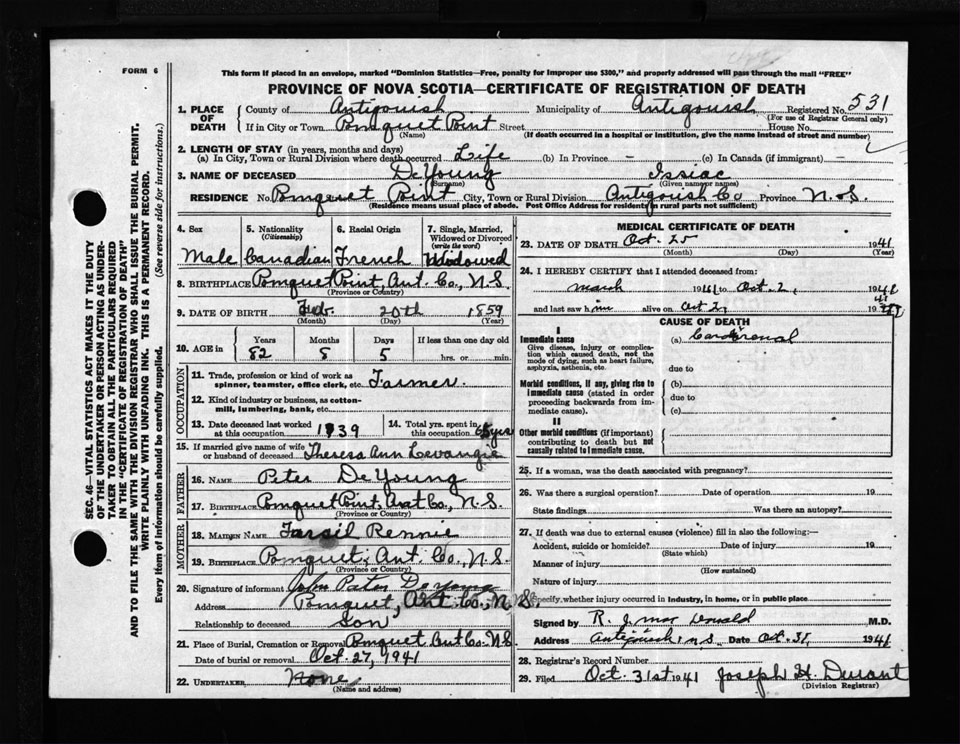 FORM 6
This form if placed in an envelope, marked "Dominion Statistics—Free, penalty for improper use $300," and properly addressed will pass through the mail "FREE"
PROVINCE OF NOVA SCOTIA—CERTIFICATE OF REGISTRATION OF DEATH
1. PLACE OF DEATH County of Antigonish Municipality of Antigonish Registered No. 531
(For use of Registrar General only)
If in City or Town Pomquet Point Street House No.
(Name) (If death occurred in a hospital or institution, give the name instead of street and number)
2. LENGTH OF STAY (in years, months and days)
(a) In City, Town or Rural Division where death occurred Life (b) In Province – (c) In Canada (if immigrant) –
3. NAME OF DECEASED DeYoung Issiac
(Surname) (Given name or names)
RESIDENCE No. Pomquet Point City, Town or Rural Division Antigonish Co Province N.S.
(Residence means usual place of abode. Post Office Address for residents in rural parts not sufficient)
4. Sex 5. Nationality (Citizenship) 6. Racial Origin 7. Single, Married, Widowed or Divorced (write the word)
Male Canadian French Widowed
8. BIRTHPLACE Pomquet Point, Ant. Co., N.S.
(Province or Country)
9. DATE OF BIRTH Feb. 20th 1859
(Month) (Day) (Year)
10. AGE in Years Months Days If less than one day old
82 8 5 hrs. or min.
OCCUPATION
11. Trade, profession or kind of work as spinner, teamster, office clerk, etc. Farmer.
12. Kind of industry or business, as cotton-mill, lumbering, bank, etc.
13. Date deceased last worked at this occupation 1939 14. Total yrs. spent in this occupation 65 yrs
15. If married give name of wife or husband of deceased Theresa Ann Levangie
FATHER
16. NAME Peter DeYoung
17. BIRTHPLACE Pomquet Point, Ant Co., N.S.
(Province or Country)
MOTHER
18. MAIDEN NAME Farsil Rennie
19. BIRTHPLACE Pomquet, Ant. Co., N.S.
(Province or Country)
20. Signature of informant John Peter DeYoung
Address Pomquet, Ant. Co., N.S.
Relationship to deceased Son
21. Place of Burial, Cremation or Removal Pomquet Ant Co. N.S.
Date of burial or removal Oct. 27, 1941
22. UNDERTAKER None
(Name and address)
MEDICAL CERTIFICATE OF DEATH
23. DATE OF DEATH Oct. 25 1941
(Month) (Day) (Year)
24. I HEREBY CERTIFY that I attended deceased from:
March 1941 to Oct. 2, 1941
and last saw him alive on Oct 2, 1941
CAUSE OF DEATH
I
Immediate cause (a) Cardiorenal
Give disease, injury or complication which caused death, not the mode of dying, such as heart failure, asphyxia, asthenia, etc.
due to
Morbid conditions, if any, giving rise to immediate cause (stated in order proceeding backwards from immediate cause). (b)
due to
(c)
II
Other morbid conditions (if important) contributing to death but not causally related to immediate cause.
25. If a woman, was the death associated with pregnancy?
26. Was there a surgical operation? Date of operation 19
State findings Was there an autopsy?
27. If death was due to external causes (violence) fill in also the following:—
Accident, suicide or homicide? Date of injury 19
(State which)
Manner of injury
(How sustained)
Nature of injury
Specify whether injury occurred in industry, in home, or in public place
Signed by R. J. MacDonald M.D.
Address Antigonish N S Date Oct. 31, 1941
28. Registrar's Record Number
29. Filed Oct. 31st 1941 Joseph H. Durant
(Division Registrar)
SEC. 46—VITAL STATISTICS ACT MAKES IT THE DUTY OF THE UNDERTAKER OR PERSON ACTING AS UNDERTAKER TO OBTAIN ALL THE PARTICULARS REQUIRED IN THE "CERTIFICATE OF REGISTRATION OF DEATH" AND TO FILE THE SAME WITH THE DIVISION REGISTRAR WHO SHALL ISSUE THE BURIAL PERMIT.
WRITE PLAINLY WITH UNFADING INK. THIS IS A PERMANENT RECORD.
Every item of information should be carefully supplied. (See reverse side for instructions.)